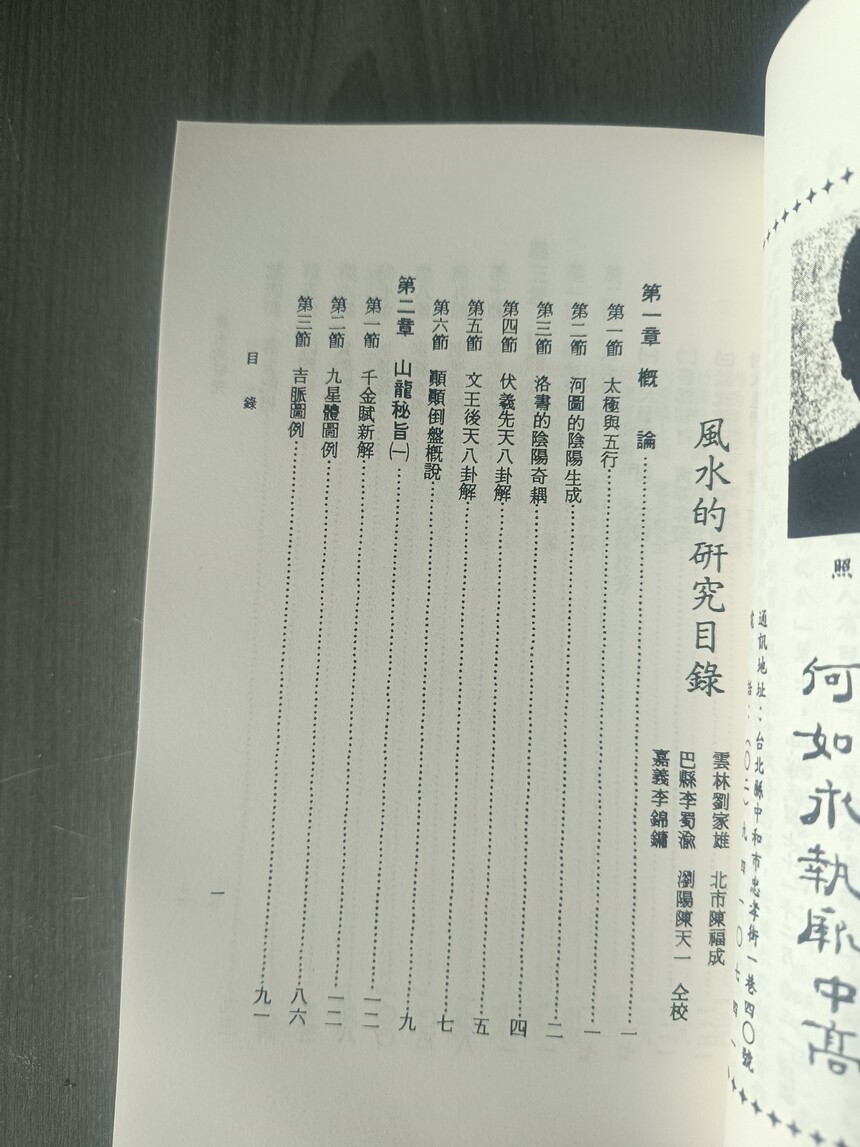 照
何如永執厥中高
通訊地址：台北縣中和市忠孝街一巷四〇號
電話：（〇二）九四一〇七四一
風水的研究目錄
雲林劉家雄 北市陳福成
巴縣李蜀渝 瀏陽陳天一 仝校
嘉義李錦鏞
第一章 概 論……一
第一節 太極與五行……一
第二節 河圖的陰陽生成……二
第三節 洛書的陰陽奇耦……四
第四節 伏羲先天八卦解……五
第五節 文王後天八卦解……七
第六節 顛顛倒盤概說……九
第二章 山龍秘旨㈠……一二
第一節 千金賦新解……一二
第二節 九星體圖例……八六
第三節 吉脈圖例……九一
目 錄
一